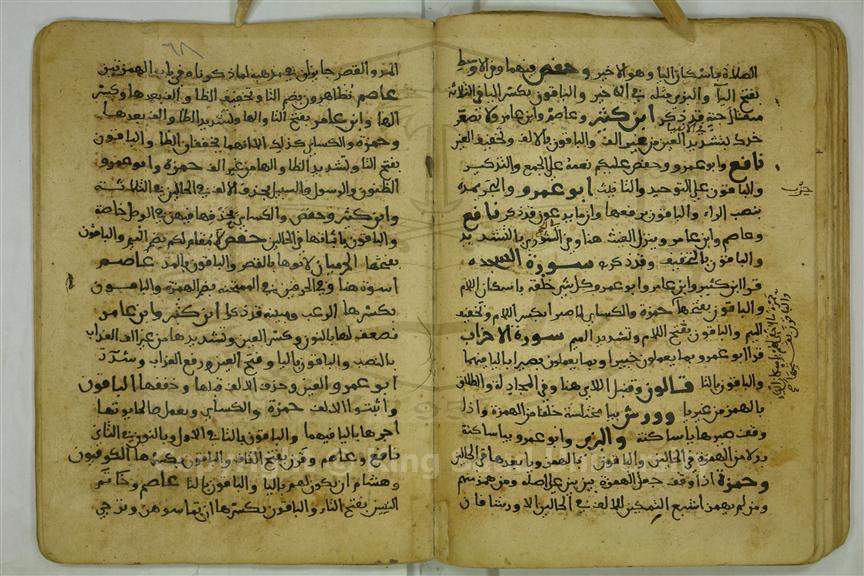 الصلاة باسكان اليا وهو الاخير وحفص فيهما وفي الاوسط
بفتح اليا والبزي مثله في الاخير والباقون بكسر اليا في الثلاثة
مثقال حبة قد ذكر ابن كثير وعاصم وابن عامر ولا تصعر
خدك بتشديد العين من غير الف والباقون بالالف وتخفيف العين
نافع وابو عمرو وحفص عليكم نعمه على الجمع والتذكير
والباقون على التوحيد والتانيث ابو عمرو والبحر يمده
بنصب الراء والباقون برفعها وان ما يدعون قد ذكر نافع
وعاصم وابن عامر وينزل الغيث هنا وفي الشورى بالتشديد
والباقون بالتخفيف وقد ذكر سورة السجدة
قرا ابن كثير وابن عامر وابو عمرو كل شي خلقه باسكان اللام
والباقون بفتحها حمزة والكسائي لما صبروا بكسر اللام وتخفيف
الميم والباقون بفتح اللام وتشديد الميم سورة الاحزاب
قرا ابو عمرو بما يعملون خبيرا وبما يعملون بصيرا باليا فيهما
والباقون بالتا قالون وقنبل اللاي هنا وفي المجادلة والطلاق
بالهمز من غير يا وورش بيا مختلسة خلفا من الهمزة واذا
وقف صيرها يا ساكنة والبزي وابو عمرو بيا ساكنة
بدلا من الهمزة في الحالين والباقون بالهمز ويا بعدها في الحالين
وحمزة اذا وقف جعل الهمزة بين بين على اصله ومن همز منهم
ومن لم يهمز اشبع التمكين للالف في الحالين الا ورشا فان
المد والقصر جايزان في مذهبه لما ذكرناه في باب الهمزتين
عاصم تظاهرون بضم التا وتخفيف الظا والف بعدها وكسر
الها وابن عامر بفتح التا والها وتشديد الظا والف بعدها
وحمزة والكسائي كذلك الا انهما يخففان الظا والباقون
بفتح التا وتشديد الظا والها من غير الف حمزة وابو عمرو
الظنون والرسول والسبيل بحذف الالف في الحالين في الثلاثة
وابن كثير وحفص والكسائي بحذفها فيهن في الوصل خاصة
والباقون باثباتها في الحالين حفص لا مقام لكم بضم الميم والباقون
بفتحها الحرميان لاتوها بالقصر والباقون بالمد عاصم
اسوة هنا وفي الحرفين في الممتحنة بضم الهمزة والباقون
بكسرها الرعب ومبينة قد ذكرا ابن كثير وابن عامر
نضعف لها بالنون وكسر العين وتشديدها من غير الف العذاب
بالنصب والباقون باليا وفتح العين ورفع العذاب وشدد
ابو عمرو العين وحذف الالف قبلها وخففها الباقون
واثبتوا الالف حمزة والكسائي ويعمل صالحا يوتها
اجرها باليا فيهما والباقون بالتا في الاول وبالنون في الثاني
نافع وعاصم وقرن بفتح القاف والباقون بكسرها الكوفيون
وهشام ان يكون لهم باليا والباقون بالتا عاصم وخاتم
النبيين بفتح التا والباقون بكسرها ان تماسوهن وترجي